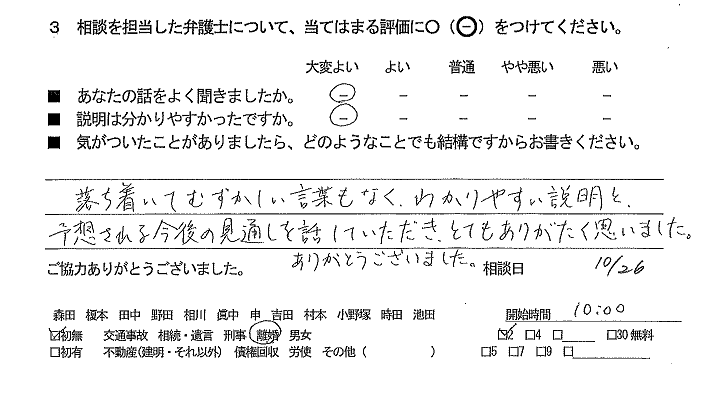 3 相談を担当した弁護士について、当てはまる評価に○（⊖）をつけてください。
大変よい よい 普通 やや悪い 悪い
■ あなたの話をよく聞きましたか。 － － － － －
■ 説明は分かりやすかったですか。 － － － － －
■ 気がついたことがありましたら、どのようなことでも結構ですからお書きください。
落ち着いてむずかしい言葉もなく、わかりやすい説明と、
予想される今後の見通しを話していただき、とてもありがたく思いました。
ありがとうございました。
ご協力ありがとうございました。 相談日 10/26
森田 榎本 田中 野田 相川 眞中 申 吉田 村本 小野塚 時田 池田 開始時間 10:00
☑初無 交通事故 相続・遺言 刑事 離婚 男女 ☑2 □4 □____ □30無料
□初有 不動産(建明・それ以外) 債権回収 労使 その他（ ） □5 □7 □9 □____